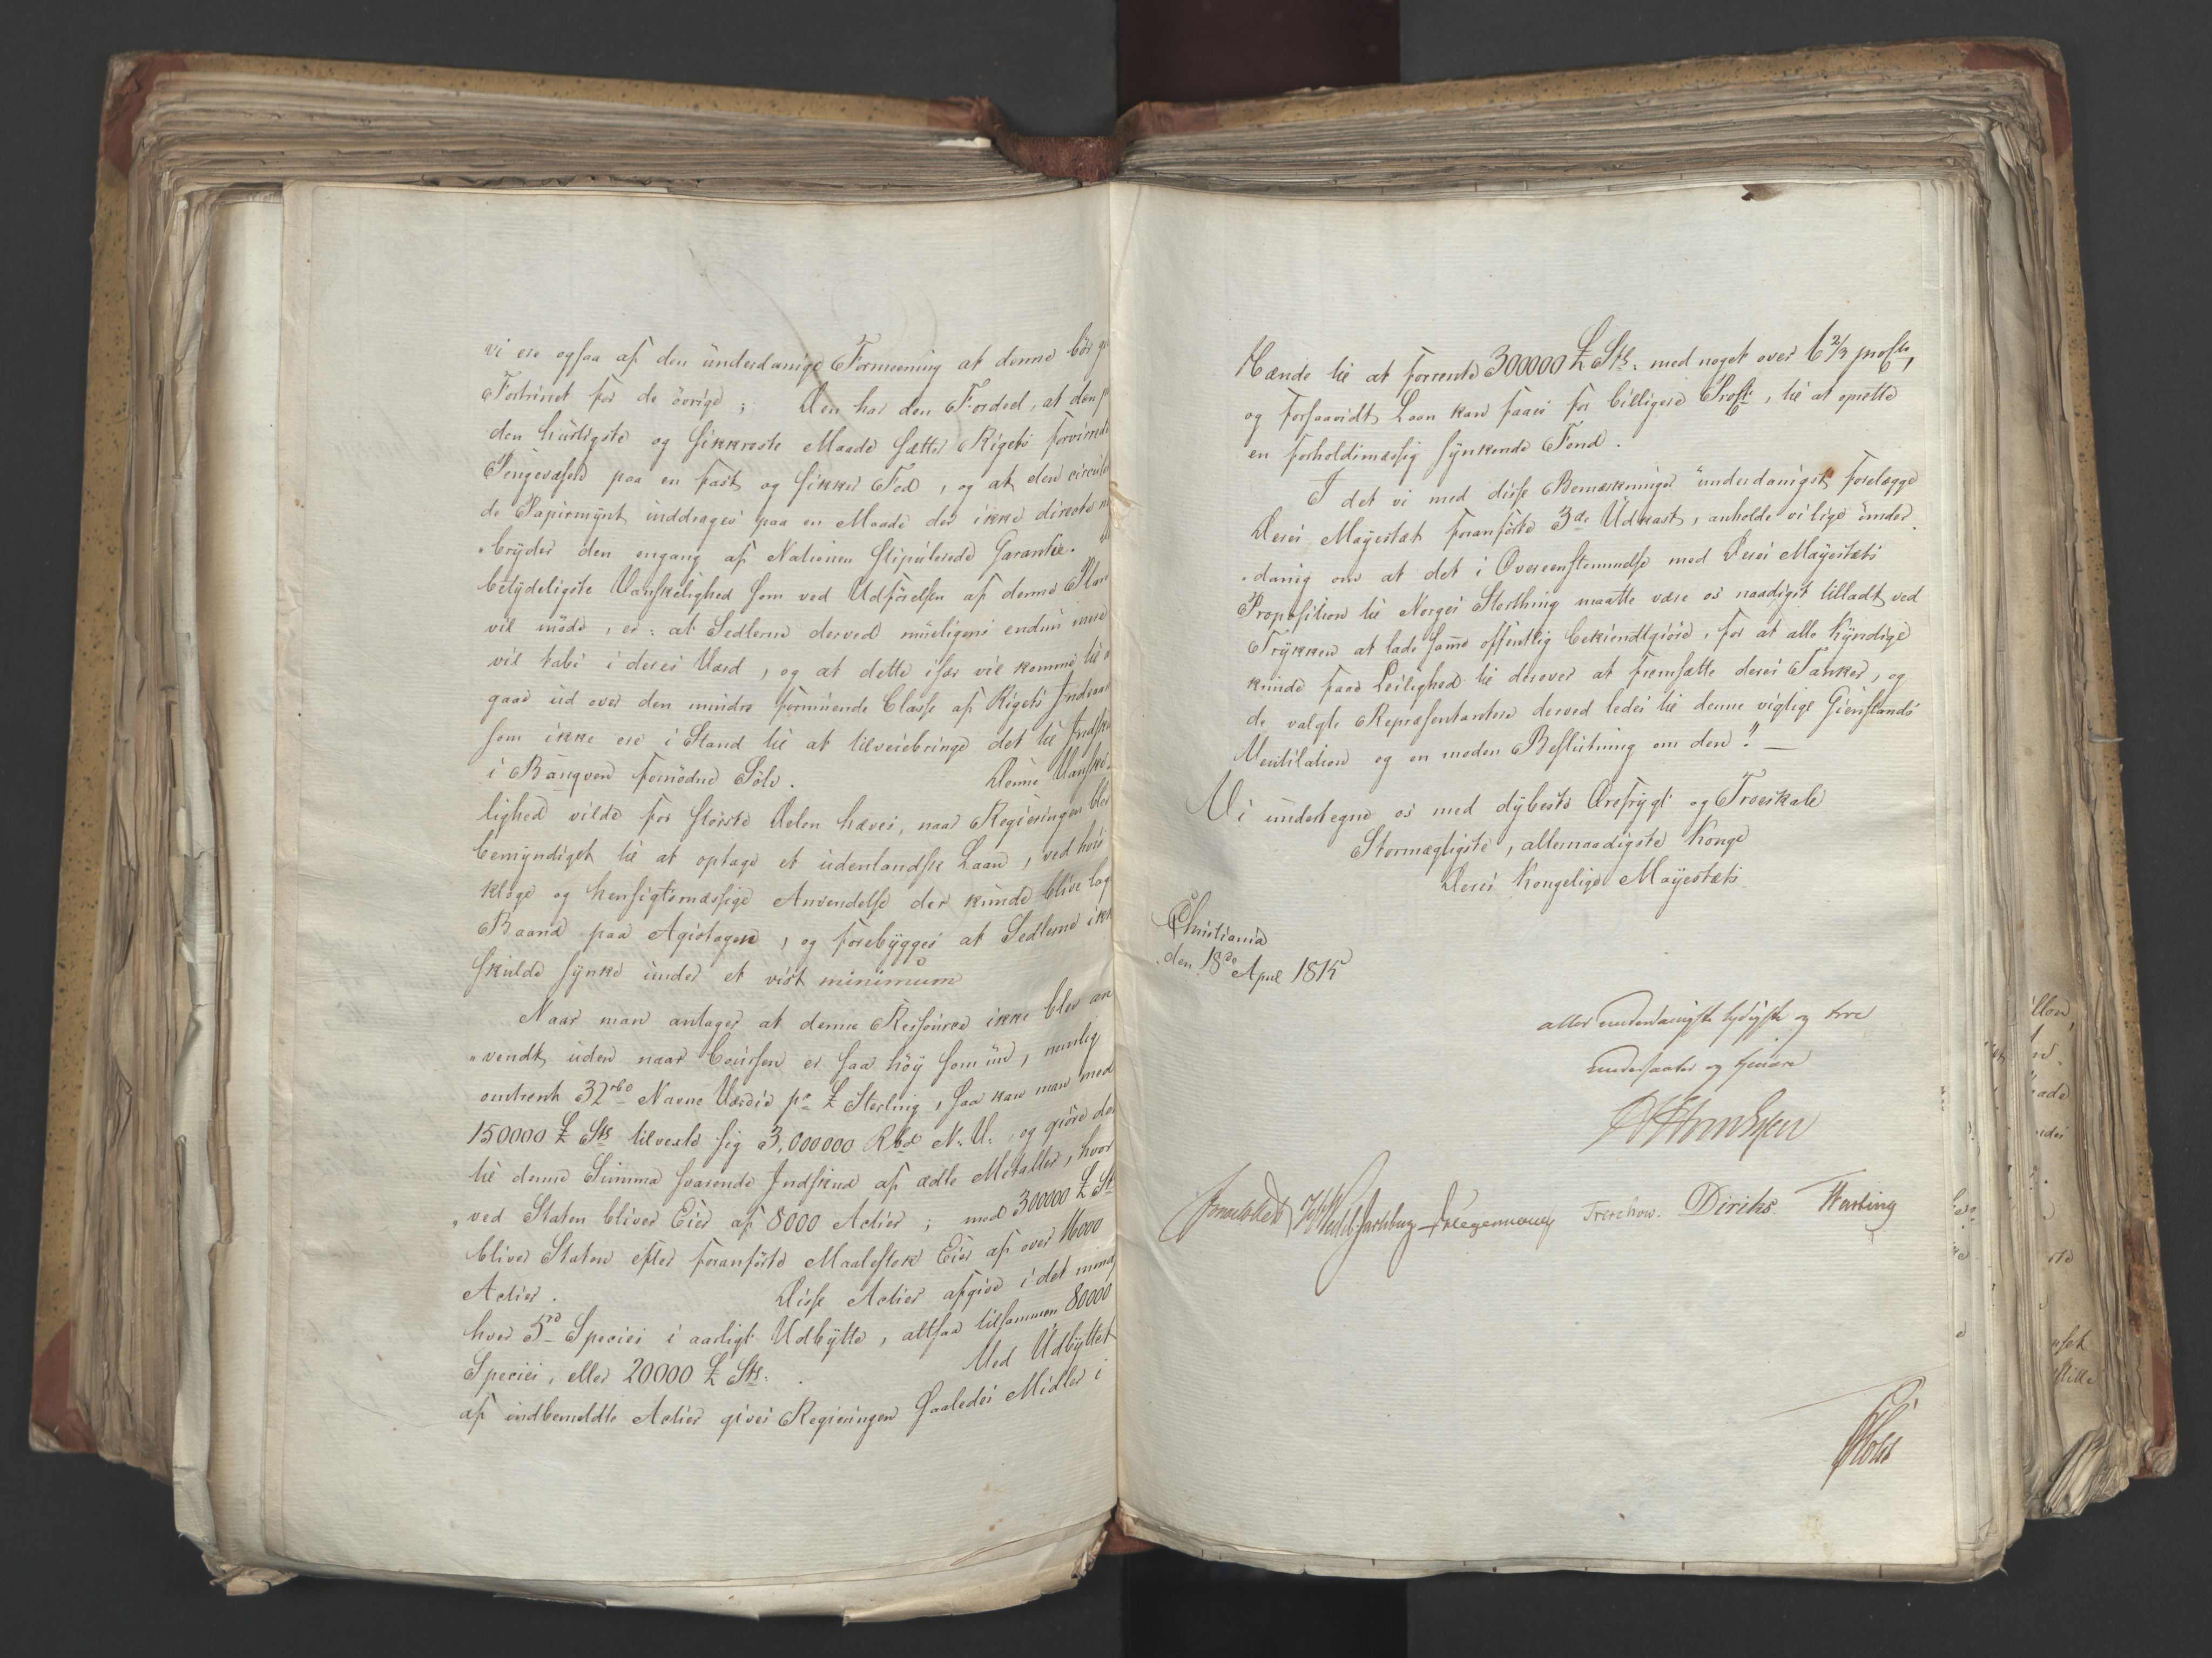 vi ere ogsaa af den underdanige Formeening at denne bör
Fortrinet for de övrige; Den har den Fordeel, at den
den hurtigste og sikkreste Maade sætter Rigets forvirrede
Pengevæsen paa en fast og sikker Fod, og at den circule
de Papirmynt inddrages paa en Maade der ikke directe
bryder den engang af Nationen stipulerede Garantie.
betydeligste Vanskelighed som ved Udförelsen af denne Plan
vil möde, er: at Sedlerne derved mueligens endnu mere
vil tabe i deres Værd, og at dette især vil komme til
gaae ud over den mindre formuende Classe af Rigets
som ikke ere i Stand til at tilveiebringe det til
i Banqven fornödne Sölv. Denne Vanske-
lighed vilde for störste Delen hæves, naar Regieringen blev
bemyndiget til at optage et udenlandsk Laan, ved hvis
kloge og hensigtsmæssige Anvendelse der kunde blive lag
Baand paa Agiotagen, og forebygges at Sedlerne ikk
skulde synke under et vist minimum
Naar man antager at denne Ressource ikke blev an
"vendt, uden naar Coursen er saa höy som nu, nemlig
omtrent 32 rbd Navne Værdie pr £ Sterling, saa kan man med
150000 £ Stg tilvexle sig 3,000000 Rbd N. V:, og giöre det
til denne Summa svarende Indskud af ædle Metaller, hvor
"ved Staten bliver Eier af 8000 Actier; med 300000 £ St
bliver Staten efter foranförte Maalestok Eier af over 16000
Actier. Disse Actier afgive i det mind
hver 5 rd Species i aarligt Udbytte, altsaa tilsammen 80000
Species, eller 20000 £ Stg. Ved Udbyttet
af indbemeldte Actier gives Regieringen saaledes Midler i
Hænde til at forrente 300000 £ Stg: med noget over 6 2/3 procto,
og forsaavidt Laan kan faaes for billigere Procto, til at oprette
en forholdsmæssig synkende Fond.
I det vi med disse Bemærkninger underdanigst forelægge
Deres Mayestæt foranförte 3de Udkast, anholde vi lige under
"danig om at det i Overeenstemmelse med Deres Mayestæts
Proposition til Norges Storthing maatte være os naadigst tilladt ved
Trykken at lade samme offentlig bekiendtgiöre, for at alle kyndige
kunde faae Leilighed til derover at fremsætte deres Tanker, og
de valgte Repræsentantere derved ledes til denne vigtige Gienstands
Ventilation og en moden Beslutning om den." —
Vi undertegne os med dybeste Ærefrygt og Troeskab
Stormægtigste, allernaadigste Konge
Deres Kongelige Mayestæts
Christiania
den 18de April 1815
aller underdanigste lydigste og troe
undersaater og tjenere
Sommerhielm HWedel Jarlsberg Hegermann Treschow. Diriks Hasting
Holst